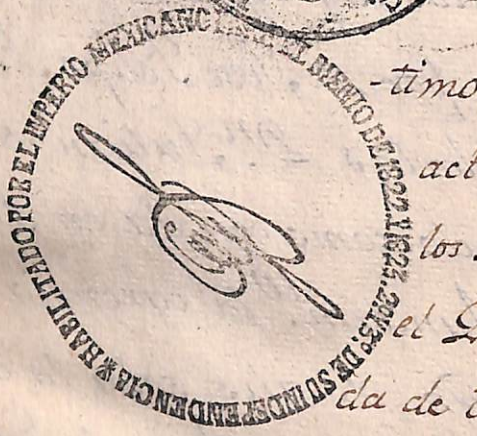 HABILITADO POR EL IMPERIO MEXICANO PARA EL BIENIO DE 1822. Y 1823. 2º Y 3º. DE SU INDEPENDENCIA
-timo
act
los
el
da de